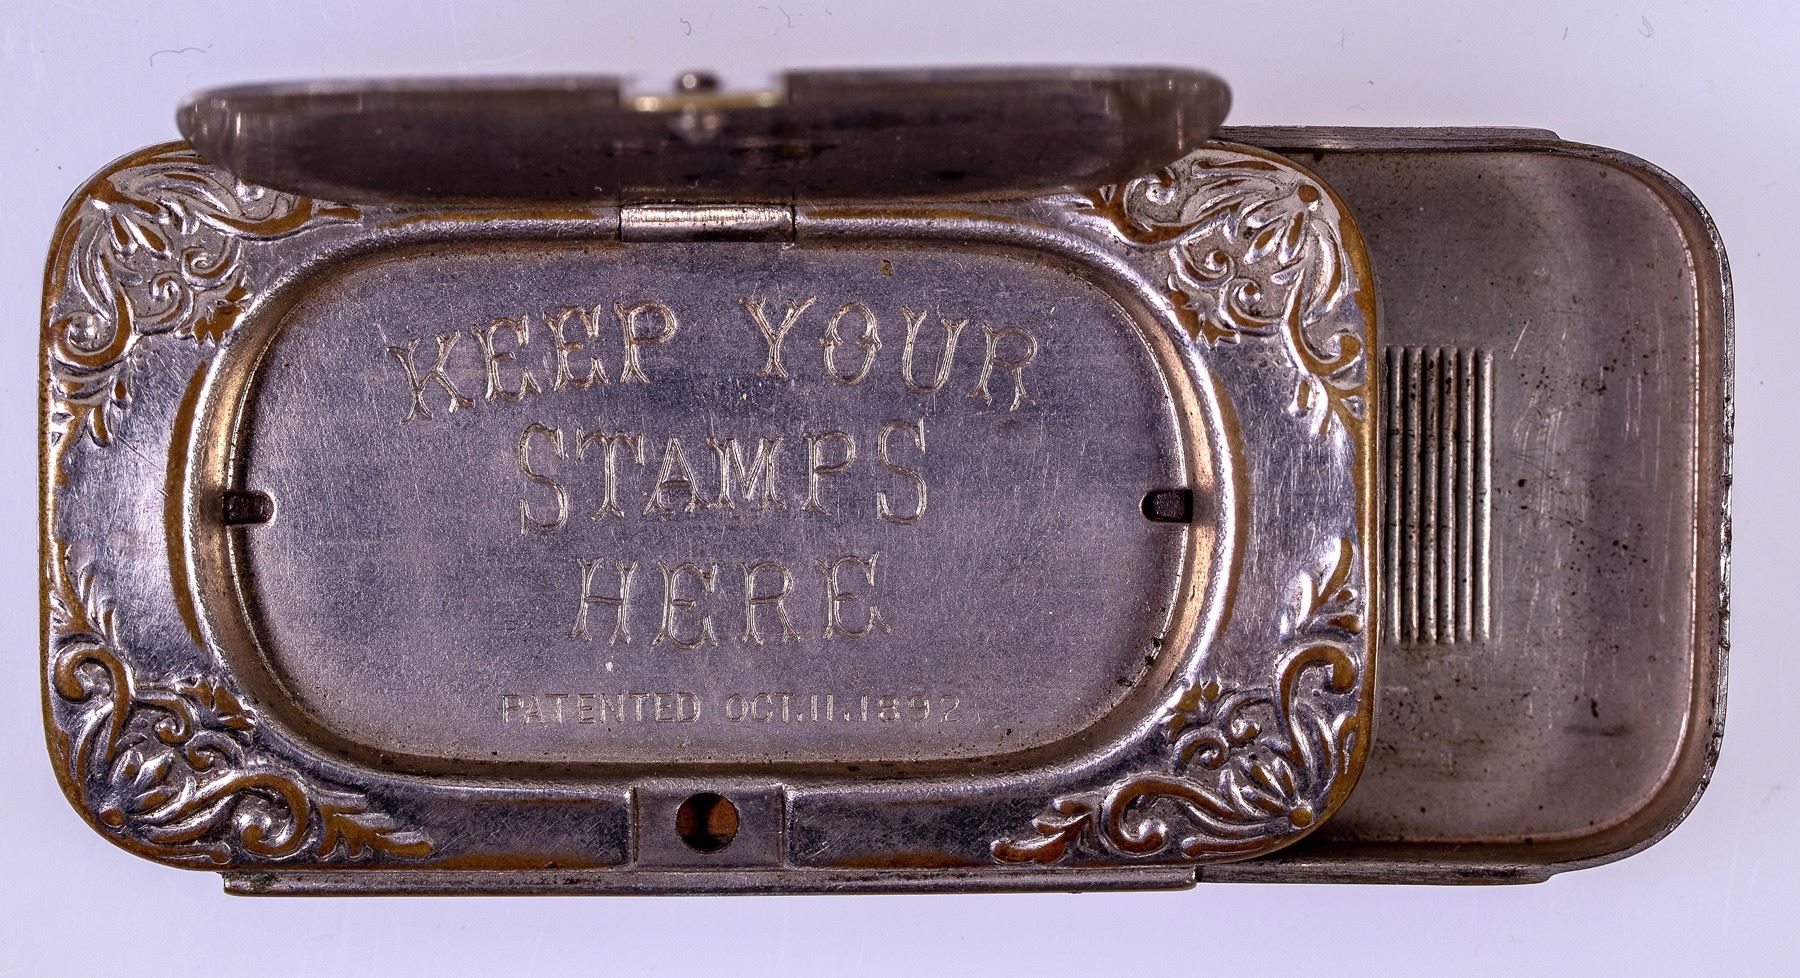 KEEP YOUR
STAMPS
HERE
PATENTED OCT.11.1892